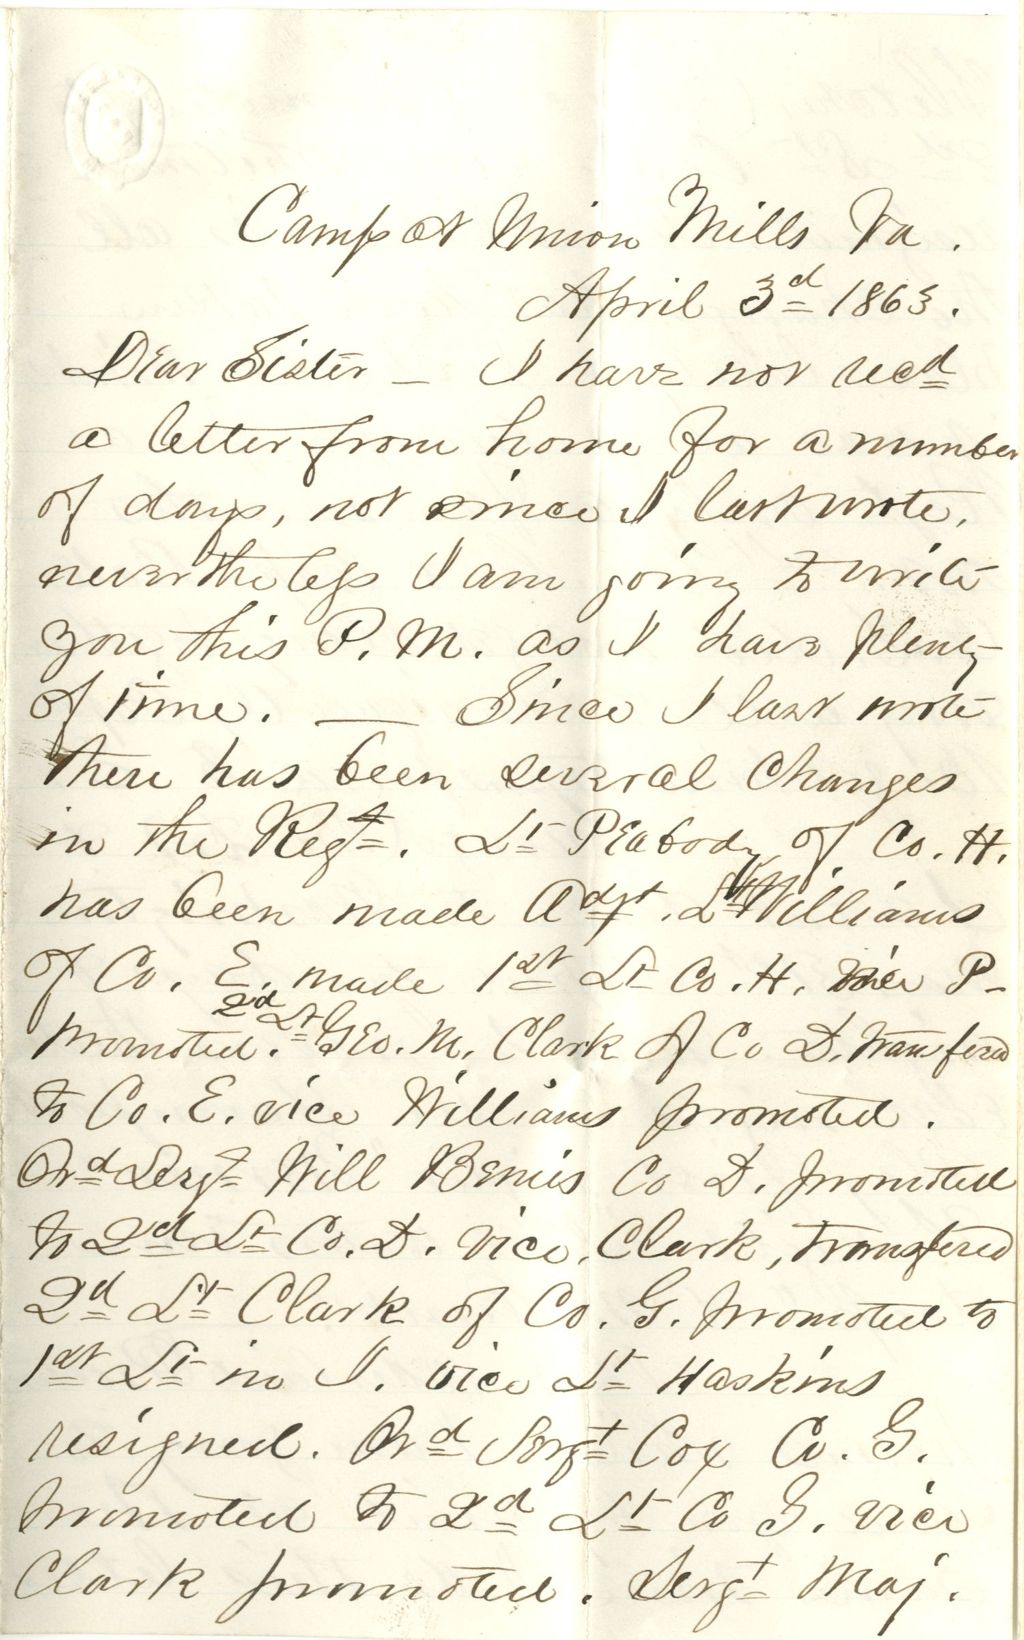 Camp at Union Mills Va.
April 3d 1863.
Dear Sister — I have not recd
a letter from home for a number
of days, not since I last wrote,
nevertheless I am going to write
you this P.M. as I have plenty
of time. — Since I last wrote
there has been several changes
in the Regt. Lt Peabody of Co. H.
has been made Adjt. Lt Williams
of Co. E. made 1st Lt Co. H. vice P-
promoted. 2d Lt Geo. M. Clark of Co D. transfered
to Co. E. vice Williams promoted.
Ord Sergt Will Bemis Co D. promoted
to 2d Lt Co. D. vice, Clark, transfered
2d Lt Clark of Co. G. promoted to
1st Lt in I. vice Lt Haskins
resigned. Ord Sergt Cox Co. G.
promoted to 2d Lt Co G. vice
Clark promoted. Sergt Maj.